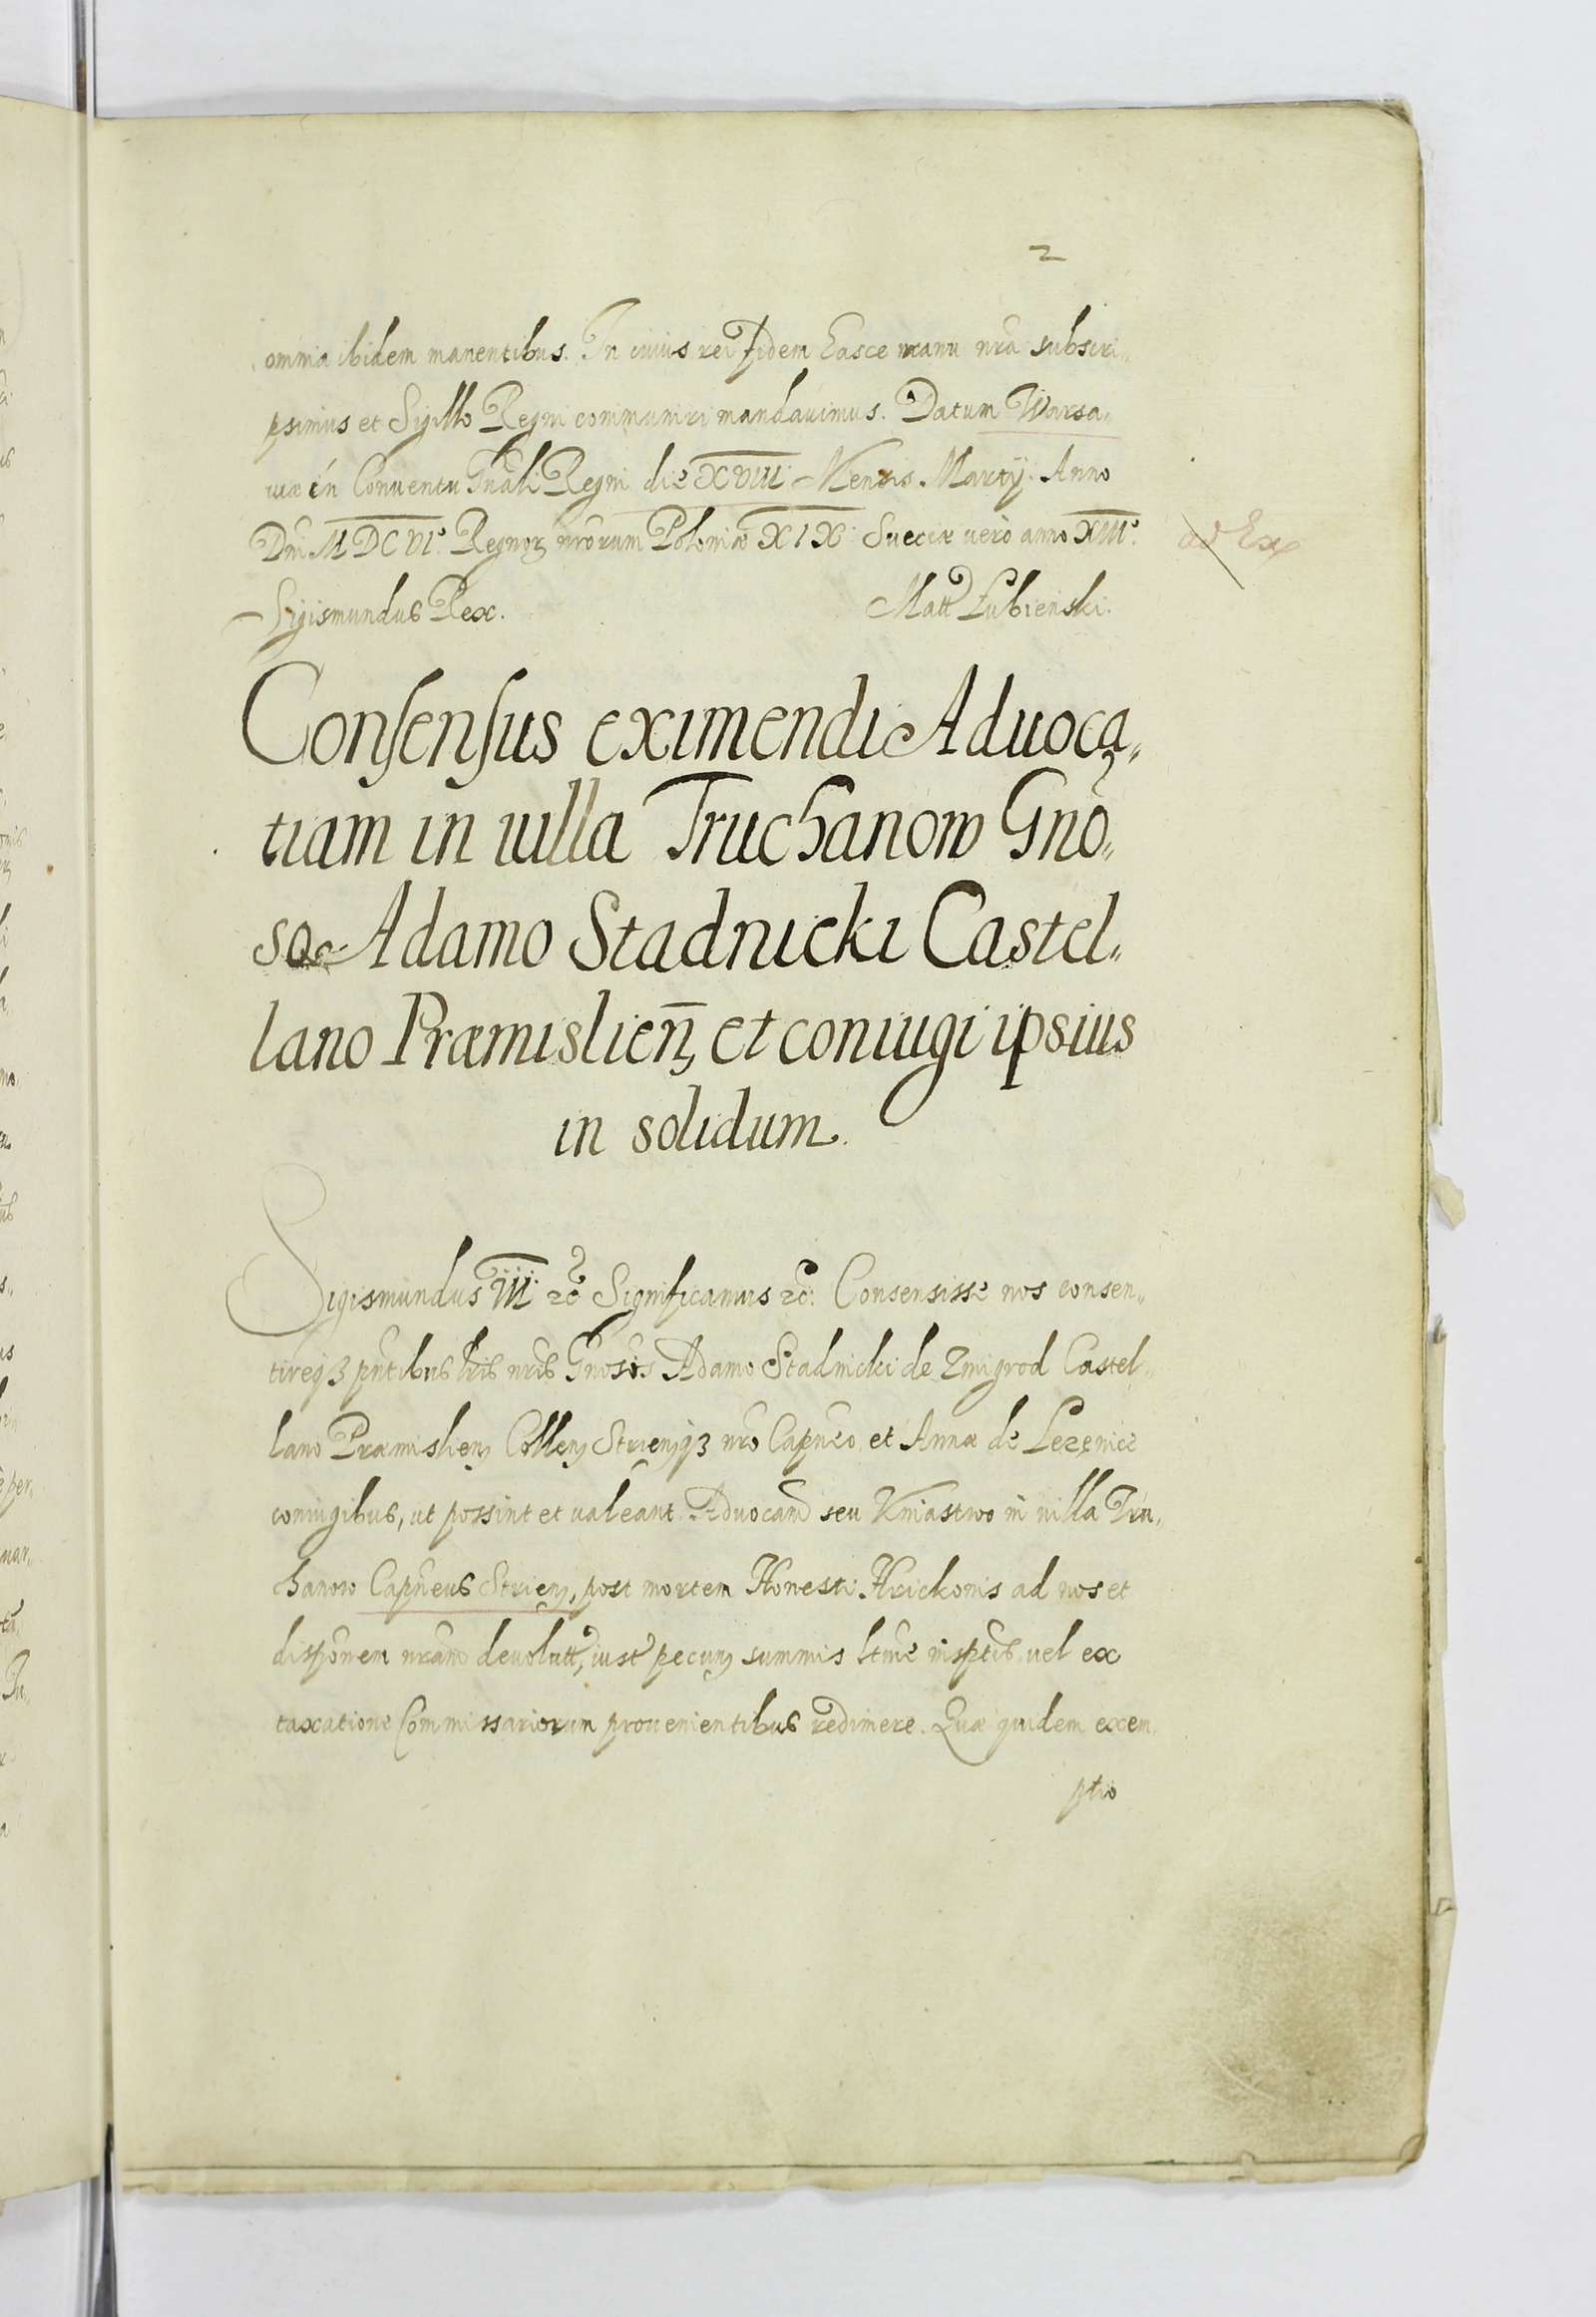 2
omnia ibidem manentibus. In cuius rei fidem hasce manu nrã subscri„
psimus et Sigillo Regni communiri mandauimus. Datum Warsa„
uiæ in Conuentu Gnãli Regni die XVIII Mensis Martÿ. Anno
Dni MDCVI.º Regnorꝝ nrõrum Poloniæ XIX. Sueciæ uerò anno XIIIº.
ad Ex
Sigismundus Rex. Matt Łubieński.
Consensus eximendi Aduoca„
tiam in uilla Truchanow Gnõ„
so Adamo Stadnicki Castel„
lano Præmislien̄, et coniugi ipsius
in solidum.
Sigismundus III. ꝛc̃ Significamus ꝛc̃. Consensisse nos consen„
tireqꝫ pn̄tibus lris nris Gnosis Adamo Stadnicki de Zmigrod Castel„
lano Præmislien, Collen, Strienqꝫ nrõ Capneo et Annæ de Lezenice
coniugibus, ut possint et ualeant Aduocam̃ seu Kniastwo in uilla Tru„
chanow Capneus Strien, post mortem Honesti Hrickonis ad nos et
disponem nram̃ deuolutt, iuxt pecun, summis ltme insptis, uel ex
taxatione Commissariorum prouenientibus redimere. Quæ quidem exem„
ptio